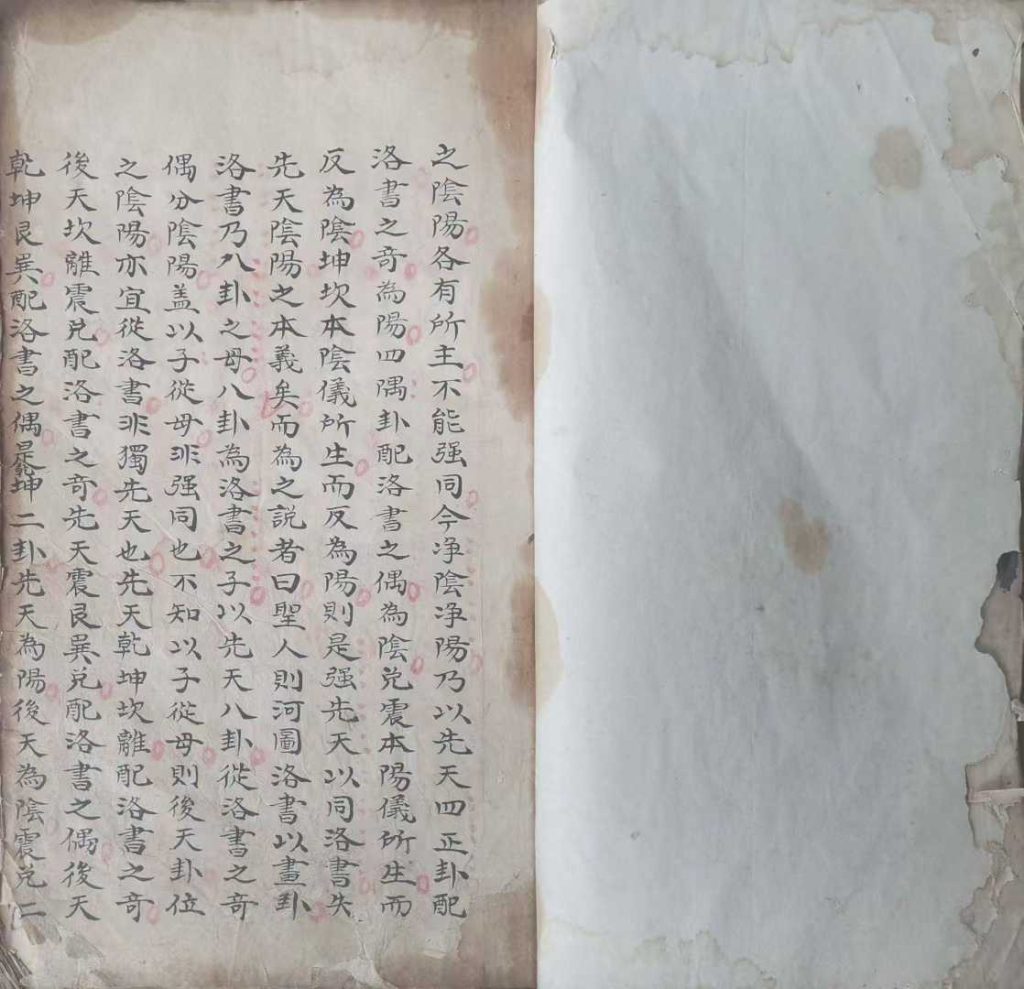 之陰陽各有所主不能强同今净陰净陽乃以先天四正卦配
洛書之奇為陽四隅卦配洛書之偶為陰兌震本陽儀所生而
反為陰坤坎本陰儀所生而反為陽則是强先天以同洛書失
先天陰陽之本義矣而為之説者曰聖人則河圖洛書以畫卦
洛書乃八卦之母八卦為洛書之子以先天八卦從洛書之奇
偶分陰陽盖以子從母非强同也不知以子從母則後天卦位
之陰陽亦宜從洛書非獨先天也先天乾坤坎離配洛書之奇
後天坎離震兌配洛書之奇先天震艮巽兌配洛書之偶後天
乾坤艮巽配洛書之偶是乾坤二卦先天為陽後天為陰震兌二